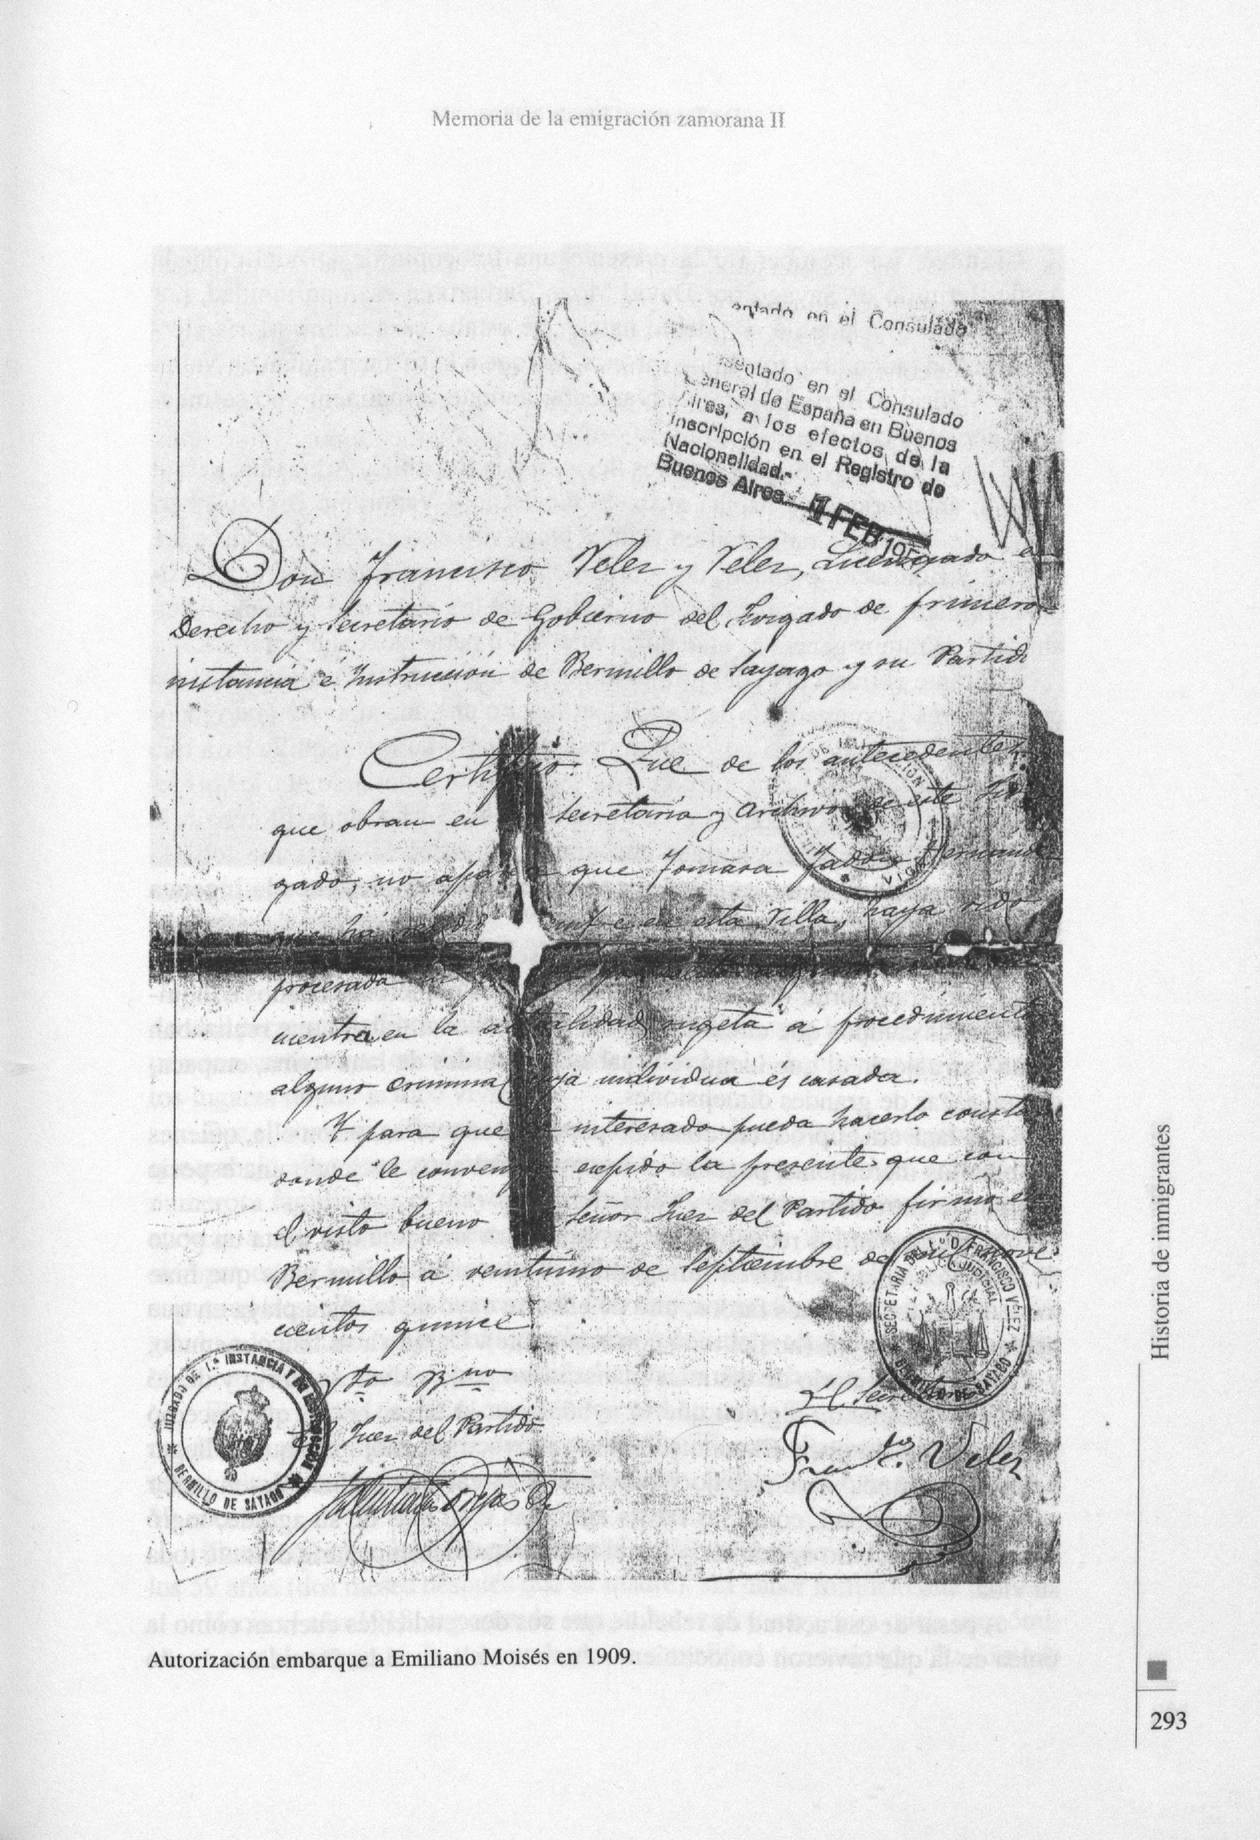 Memoria de la emigración zamorana II
en el Consulado
en el Consulado
General de España en Buenos
Aires, a los efectos de la
inscripción en el Registro de
Nacionalidad.-
Buenos Aires 1 FEB 195
Don Francisco Velez y Velez, Licenciado en
Derecho y Secretario de Gobierno del Juzgado de primera
instancia é Instrucción de Bermillo de Sayago y su Partido
Certifico: Que de los antecedentes
que obran en Secretaria y archivo de este Juz
gado, no aparece que Tomasa
en esta Villa, haya sido
procesada
cuentra en la actualidad sugeta á procedimiento
alguno criminal cuya individua és casada.
Y para que interesado pueda hacerlo constar
donde le convenga expido la presente que con
el visto bueno Señor Juez del Partido firmo en
Bermillo á veintiuno de Septiembre de mil nove
cientos quince.
Vto Bno
El Juez del Partido
El Secretario
Franco. Velez
JUZGADO DE 1ª INSTANCIA Y DE INSTRUCCION
BERMILLO DE SAYAGO
SECRETARIA DE Lº D. FRANCISCO VELEZ
BERMILLO DE SAYAGO
VIGO
Autorización embarque a Emiliano Moisés en 1909.
Historia de inmigrantes
293